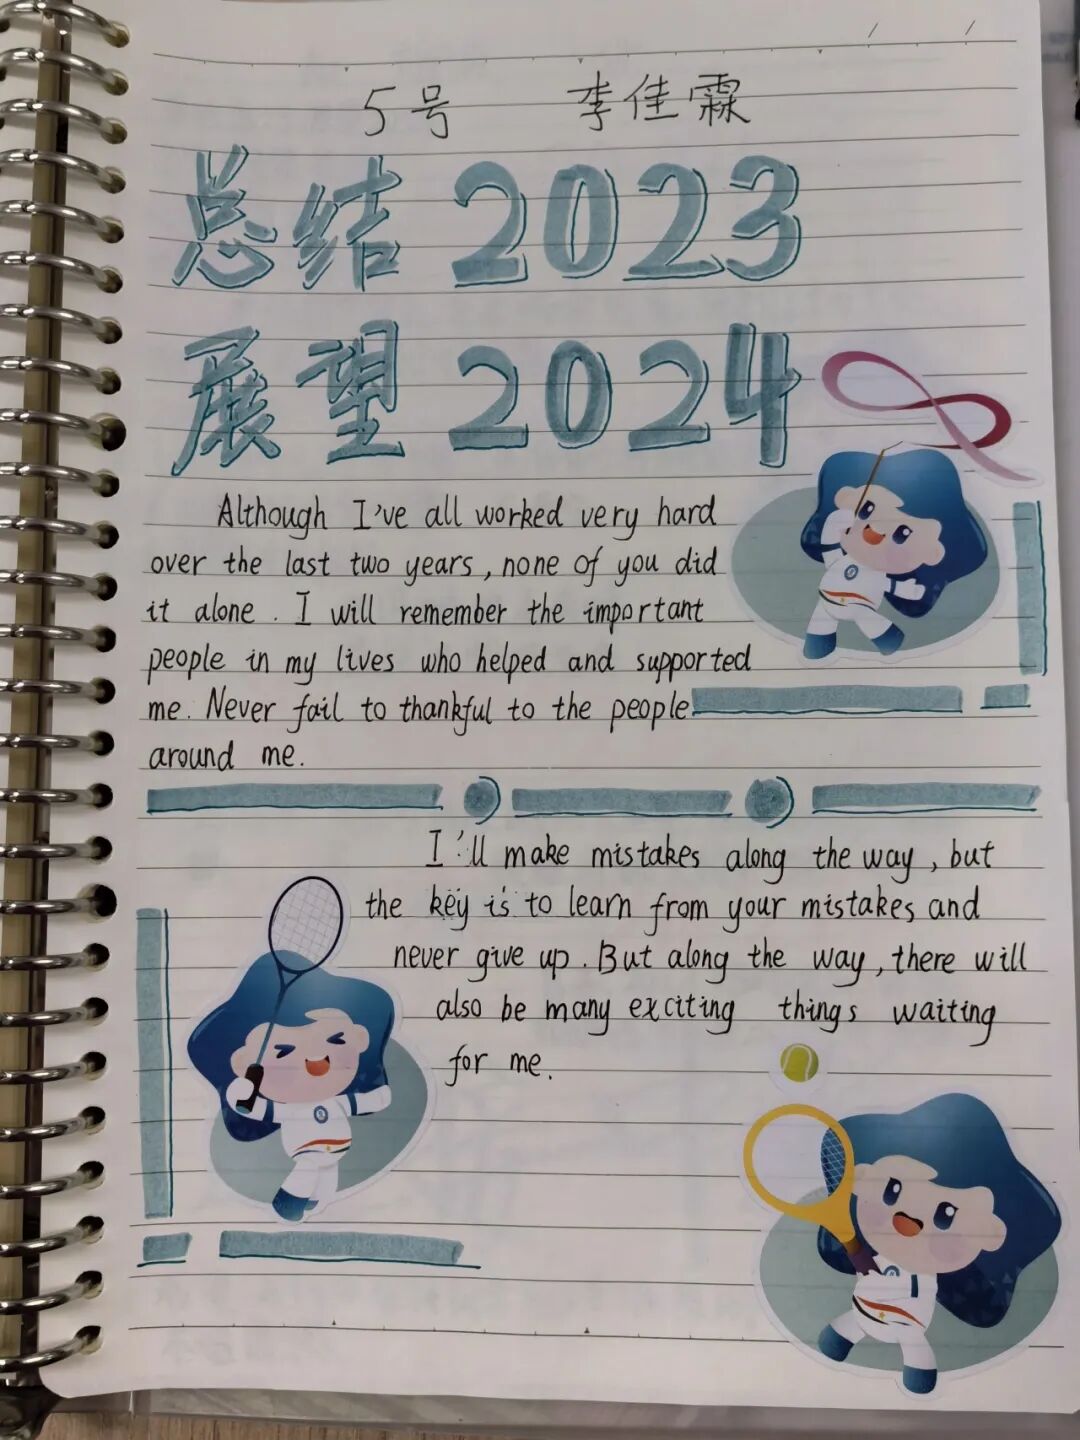 5号 李佳霖
总结 2023
展望 2024
Although I've all worked very hard
over the last two years, none of you did
it alone. I will remember the important
people in my lives who helped and supported
me. Never fail to thankful to the people
around me.
I'll make mistakes along the way, but
the key is to learn from your mistakes and
never give up. But along the way, there will
also be many exciting things waiting
for me.